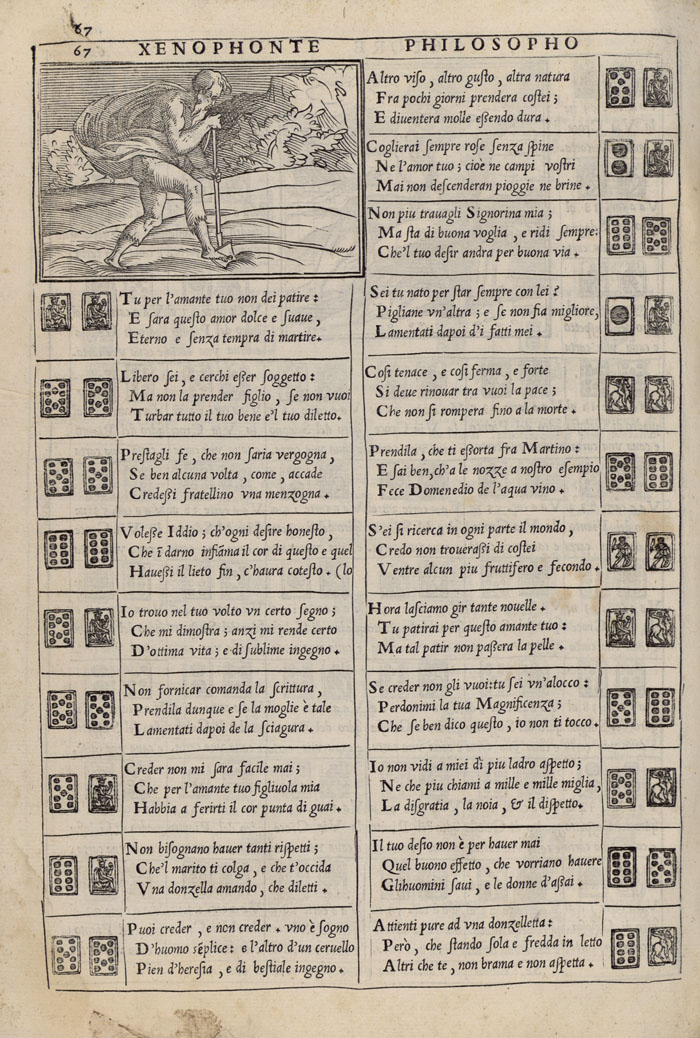 67
67
XENOPHONTE PHILOSOPHO
Tu per l'amante tuo non dei patire:
E sara questo amor dolce e suaue,
Eterno e senza tempra di martire.
Libero sei, e cerchi eßer soggetto:
Ma non la prender figlio, se non vuoi
Turbar tutto il tuo bene e'l tuo diletto.
Prestagli fe, che non saria vergogna,
Se ben alcuna volta, come, accade
Credeßi fratellino vna menzogna.
Voleße Iddio; ch'ogni desire honesto,
Che ī darno infiāma il cor di questo e quel
Haueßi il lieto fin, c'haura cotesto. (lo
Io trouo nel tuo volto vn certo segno;
Che mi dimostra; anzi mi rende certo
D'ottima vita; e di sublime ingegno.
Non fornicar comanda la scrittura,
Prendila dunque e se la moglie è tale
Lamentati dapoi de la sciagura.
Creder non mi sara facile mai;
Che per l'amante tuo figliuola mia
Habbia a ferirti il cor punta di guai.
Non bisognano hauer tanti rispetti;
Che'l marito ti colga, e che t'occida
Vna donzella amando, che diletti.
Puoi creder, e non creder. vno è sogno
D'huomo sēplice: e l'altro d'un ceruello
Pien d'heresia, e di bestiale ingegno.
Altro viso, altro gusto, altra natura
Fra pochi giorni prendera costei;
E diuentera molle eßendo dura.
Coglierai sempre rose senza spine
Ne l'amor tuo; cioè ne campi vostri
Mai non descenderan pioggie ne brine.
Non piu trauagli Signorina mia;
Ma sta di buona voglia, e ridi sempre:
Che'l tuo desir andra per buona via.
Sei tu nato per star sempre con lei?
Pigliane vn'altra; e se non fia migliore,
Lamentati dapoi d'i fatti mei.
Cosi tenace, e cosi ferma, e forte
Si deue rinouar tra vuoi la pace;
Che non si rompera fino a la morte.
Prendila, che ti eßorta fra Martino:
E sai ben, ch'a le nozze a nostro esempio
Fece Domenedio de l'aqua vino.
S'ei si ricerca in ogni parte il mondo,
Credo non troueraßi di costei
Ventre alcun piu fruttifero e fecondo.
Hora lasciamo gir tante nouelle.
Tu patirai per questo amante tuo:
Ma tal patir non paßera la pelle.
Se creder non gli vuoi: tu sei vn'alocco:
Perdonimi la tua Magnificenza;
Che se ben dico questo, io non ti tocco.
Io non vidi a miei dì piu ladro aspetto;
Ne che piu chiami a mille e mille miglia,
La disgratia, la noia, & il dispetto.
Il tuo desio non è per hauer mai
Quel buono effetto, che vorriano hauere
Glihuomini saui, e le donne d'aßai.
Attienti pure ad vna donzelletta:
Però, che stando sola e fredda in letto
Altri che te, non brama e non aspetta.